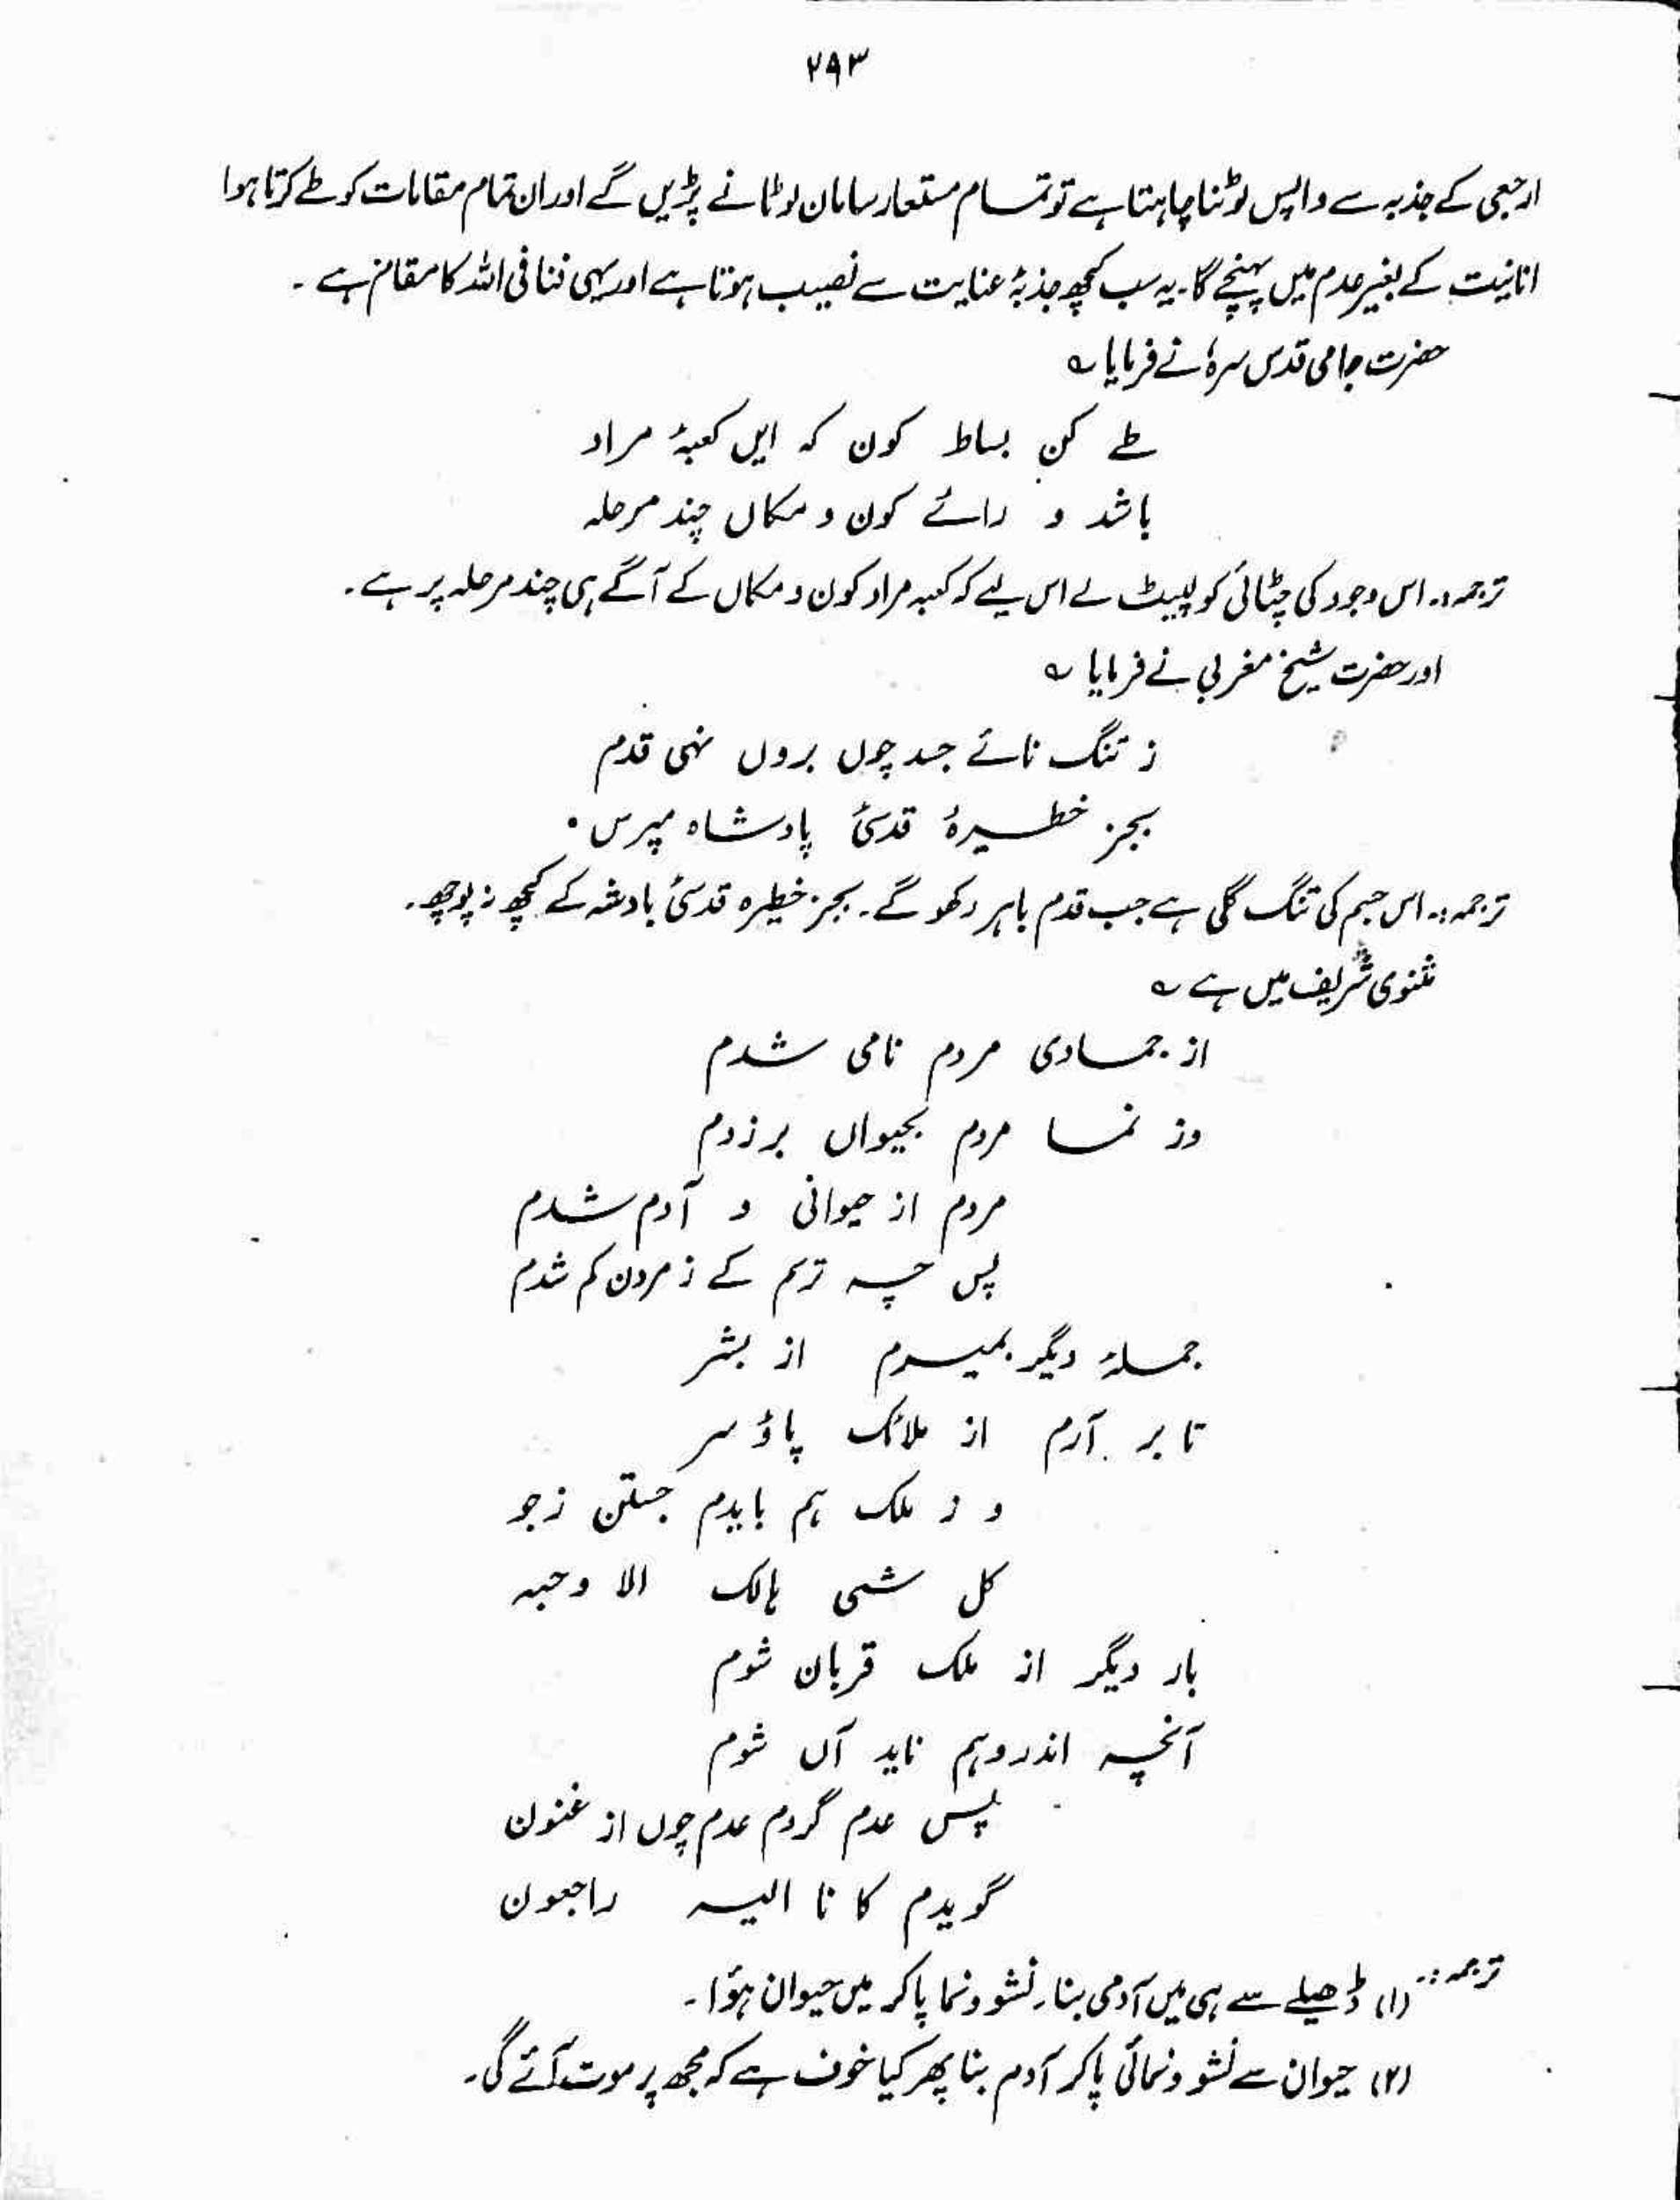 ۲۹۳
ارجعی کے جذبہ سے واپس لوٹنا چاہتا ہے تو تمام مستعار سامان لوٹانے پڑیں گے اور ان تمام مقامات کو طے کرتا ہوا
انانیت کے بغیر عدم میں پہنچے گا۔ یہ سب کچھ جذبۂ عنایت سے نصیب ہوتا ہے اور یہی فنا فی اللہ کا مقام ہے ۔
حضرت جامی قدس سرہٗ نے فرمایا ؎
طے کن بساط کون کہ ایں کعبۂ مراد
باشد و رائے کون و مکاں چند مرحلہ
ترجمہ:۔ اس وجود کی چٹائی کو لپیٹ لے اس لیے کہ کعبہ مراد کون و مکاں کے آگے ہی چند مرحلہ پر ہے ۔
اور حضرت شیخ مغربی نے فرمایا ؎
ز تنگ نائے جسد چوں بروں نہی قدم
بجز خطیرۂ قدسیٔ پادشاہ مپرس ۔
ترجمہ:۔ اس جسم کی تنگ گلی ہے جب قدم باہر رکھو گے ۔ بجز خطیرہ قدسیٔ بادشہ کے کچھ نہ پوچھ ۔
مثنوی شریف میں ہے ؎
از جمادی مردم نامی شدم
وز نما مردم بحیواں برزدم
مردم از حیوانی و آدم شدم
پس چہ ترسم کے ز مردن کم شدم
جملۂ دیگر بمیرم از بشر
تا بر آرم از ملائک پاؤ سر
و ز ملک ہم بایدم جستن ز جو
کل شیی ہالک الا وجہہ
بار دیگر از ملک قربان شوم
آنچہ اندر وہم ناید آں شوم
پس عدم گردم عدم چوں از غنون
گویدم کا نا الیہ راجعون
ترجمہ:۔ (۱) ڈھیلے سے ہی میں آدمی بنا ۔ نشو و نما پا کر میں حیوان ہؤا ۔
(۲) حیوان سے نشو و نمائی پا کر آدم بنا پھر کیا خوف ہے کہ مجھ پر موت آئے گی ۔